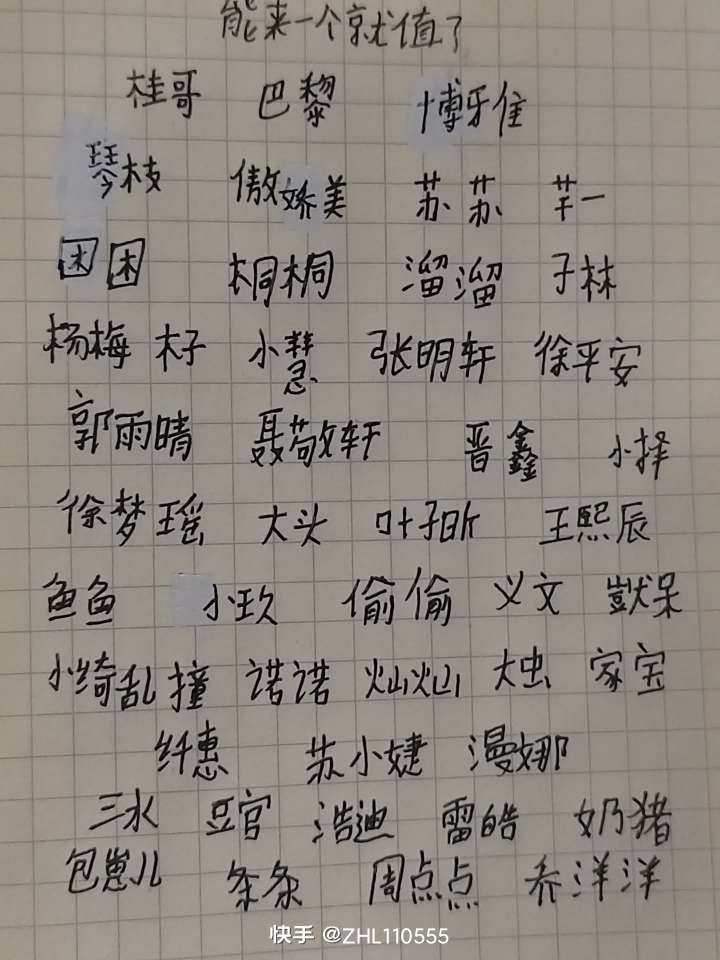 能来一个就值了
桂哥 巴黎 博雅佳
琴枝 傲娇美 苏苏 芊一
困困 桐桐 溜溜 子林
杨梅 木子 小慧 张明轩 徐平安
郭雨晴 聂敬轩 晋鑫 小择
徐梦瑶 大头 叶子昕 王熙辰
鱼鱼 小玖 偷偷 义文 呆
小绮乱撞 诺诺 灿灿 大虫 家宝
纤惠 苏小婕 漫娜
三水 豆官 浩迪 雷皓 奶猪
包崽儿 条条 周点点 乔洋洋
快手 @ZHL110555